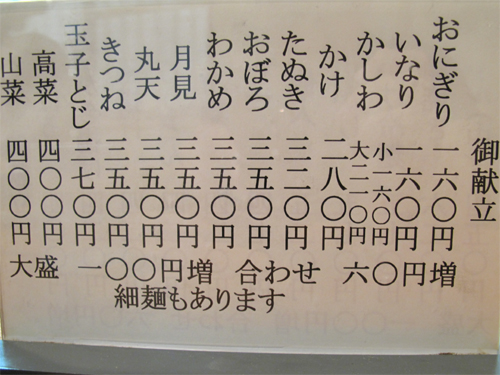 御献立
おにぎり 一六〇円
いなり 一六〇円
かしわ 小一六〇円 大二一〇円
かけ 二八〇円
たぬき 三二〇円
おぼろ 三五〇円
わかめ 三五〇円
月見 三五〇円
丸天 三五〇円
きつね 三五〇円
玉子とじ 三七〇円
高菜 四〇〇円
山菜 四〇〇円
大盛 一〇〇円増 合わせ 六〇円増
細麺もあります